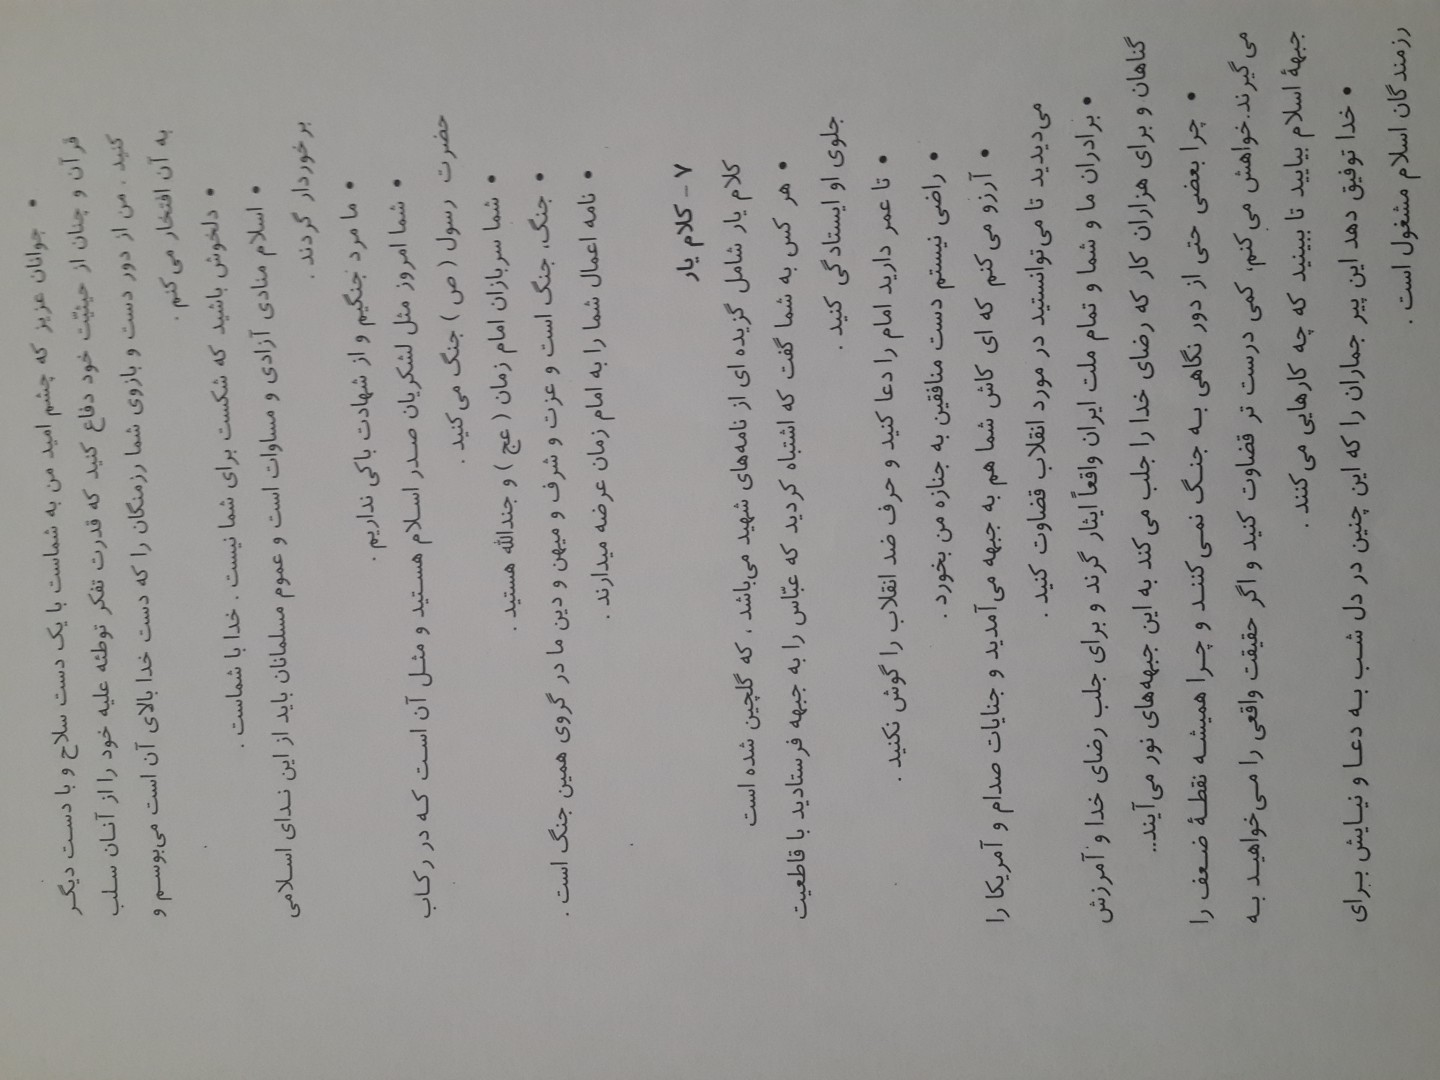 • جوانان عزیز که چشم امید من به شماست با یک دست سلاح و با دست دیگر
قرآن و چنان از حیثیّت خود دفاع کنید که قدرت تفکر توطئه علیه خود را از آنان سلب
کنید . من از دور دست و بازوی شما رزمنگان را که دست خدا بالای آن است می‌بوسم و
به آن افتخار می‌کنم .
• دلخوش باشید که شکست برای شما نیست . خدا با شماست .
• اسلام منادی آزادی و مساوات است و عموم مسلمانان باید از این ندای اسلامی
برخوردار گردند .
• ما مرد جنگیم و از شهادت باکی نداریم .
• شما امروز مثل لشکریان صدر اسلام هستید و مثل آن است که در رکاب
حضرت رسول ( ص ) جنگ می‌کنید .
• شما سربازان امام زمان ( عج ) و جندالله هستید .
• جنگ، جنگ است و عزت و شرف و میهن و دین ما در گروی همین جنگ است .
• نامه اعمال شما را به امام زمان عرضه میدارند .
۷ - کلام یار
کلام یار شامل گزیده ای از نامه‌های شهید می‌باشد ، که گلچین شده است
• هر کس به شما گفت که اشتباه کردید که عبّاس را به جبهه فرستادید با قاطعیت
جلوی او ایستادگی کنید .
• تا عمر دارید امام را دعا کنید و حرف ضد انقلاب را گوش نکنید .
• راضی نیستم دست منافقین به جنازه من بخورد .
• آرزو می‌کنم که ای کاش شما هم به جبهه می‌آمدید و جنایات صدام و آمریکا را
می‌دیدید تا می‌توانستید در مورد انقلاب قضاوت کنید .
• برادران ما و شما و تمام ملت ایران واقعاً ایثار گرند و برای جلب رضای خدا و آمرزش
گناهان و برای هزاران کار که رضای خدا را جلب می‌کند به این جبهه‌های نور می‌آیند..
• چرا بعضی حتی از دور نگاهی به جنگ نمی‌کنند و چرا همیشه نقطهٔ ضعف را
می‌گیرند.خواهش می‌کنم، کمی درست تر قضاوت کنید و اگر حقیقت واقعی را می‌خواهید به
جبههٔ اسلام بیایید تا ببینید که چه کارهایی می‌کنند .
• خدا توفیق دهد این پیر جماران را که این چنین در دل شب به دعا و نیایش برای
رزمندگان اسلام مشغول است .